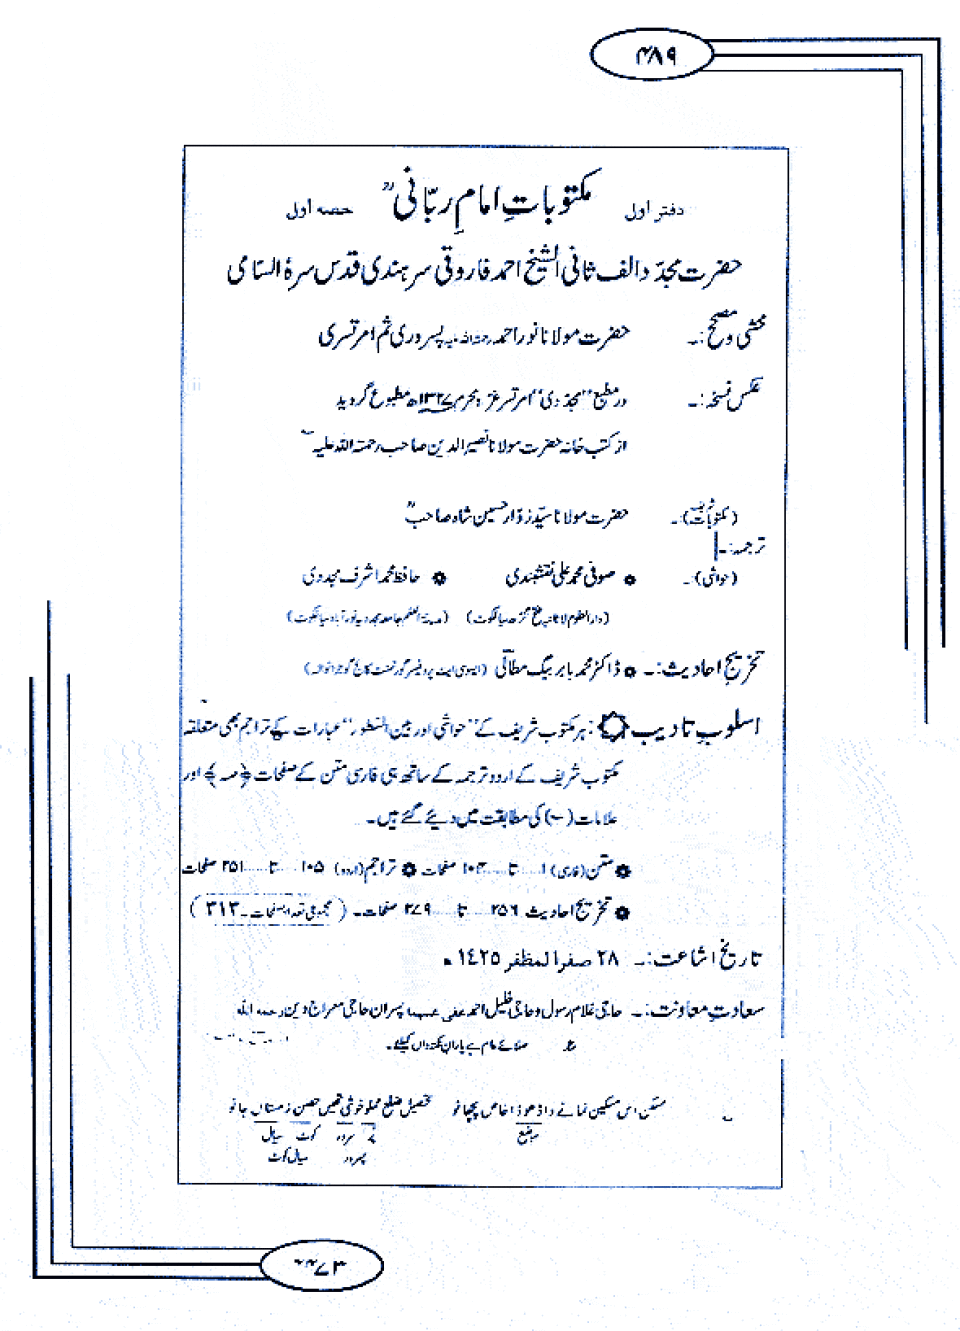 ۴۸۹
دفتر اول مکتوباتِ امامِ ربّانیؒ حصہ اول
حضرت مجدّد الف ثانی الشیخ احمد فاروقی سرہندی قدس سرہٗ السّامی
محشی و مصحح:۔ حضرت مولانا نور احمد رحمۃ اللہ علیہ پسروری ثم امرتسری
عکس نسخہ:۔ در مطبع "مجدّدی" امرتسر غرہ محرم ۱۳۲۷ھ مطبوع گردید
از کتب خانہ حضرت مولانا نصیر الدین صاحب رحمۃ اللہ علیہ
(مکتوبات شریفہ)۔ حضرت مولانا سیّد زوّار حسین شاہ صاحبؒ
ترجمہ:۔
(حواشی)۔ صوفی محمد علی نقشبندی حافظ محمد اشرف مجددی
(دارالعلوم سیالکوٹ) (جامعہ مجددیہ نور آباد سیالکوٹ)
تخریج احادیث:۔ ڈاکٹر محمد بابر بیگ مطالی (ایسوسی ایٹ پروفیسر گورنمنٹ کالج گوجرانوالہ)
اسلوبِ تادیب : ہر مکتوب شریف کے "حواشی اور بین السّطور" عبارات کے تراجم بھی متعلقہ
مکتوب شریف کے اردو ترجمہ کے ساتھ ہی فارسی متن کے صفحات اور
علامات (؎) کی مطابقت میں دیئے گئے ہیں۔
متن (فارسی) ۱.....تا.....۱۰۴ صفحات تراجم (اردو) ۱۰۵.....تا.....۲۵۱ صفحات
تخریج احادیث ۲۵۶.....تا.....۲۷۹ صفحات۔ (مجموعی تعداد صفحات۔ ۳۱۳)
تاریخ اشاعت:۔ ۲۸ صفر المظفر ۱٤۲۵ھ
سعادتِ معاونت:۔ حاجی غلام رسول و حاجی خلیل احمد عفی عنہما پسران حاجی معراج دین رحمہ اللہ
صلائے عام ہے یاران نکتہ داں کیلئے۔
مسکن اس مسکین نمانے دا ڈھوڈا خاص پچھانو تحصیل ضلع مملو خوشی تھیں حصن زمستاں جانو
موضع پسرور کوٹ سیال
پسرور سیالکوٹ